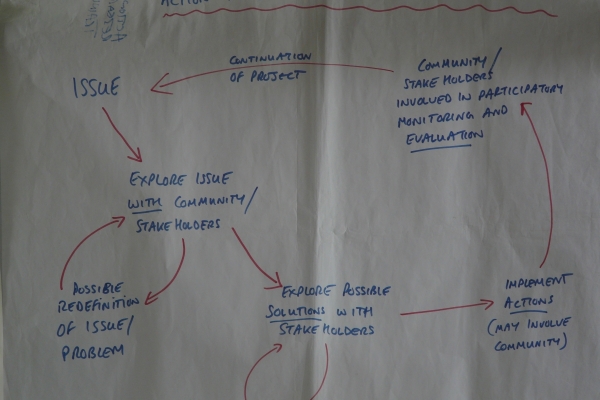 ACTION
CONTINUATION
OF PROJECT
ISSUE
COMMUNITY/
STAKEHOLDERS
INVOLVED IN PARTICIPATORY
MONITORING AND
EVALUATION
EXPLORE ISSUE
WITH COMMUNITY/
STAKEHOLDERS
POSSIBLE
REDEFINITION
OF ISSUE/
PROBLEM
EXPLORE POSSIBLE
SOLUTIONS WITH
STAKEHOLDERS
IMPLEMENT
ACTIONS
(MAY INVOLVE
COMMUNITY)